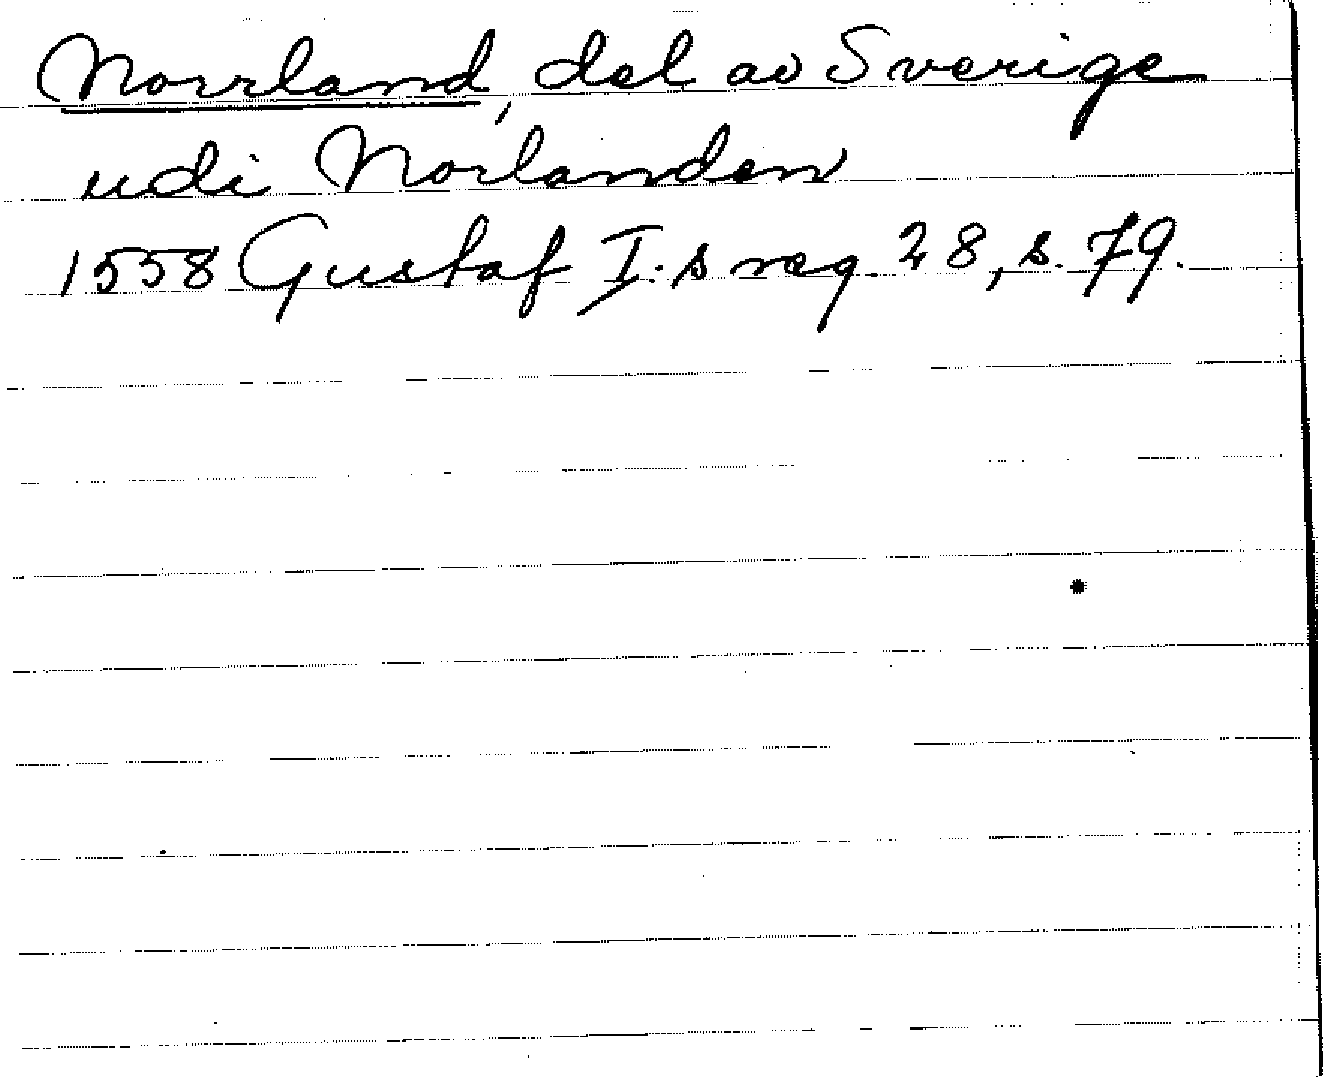 Norrland, del av Sverige
udi Norlanden
1558 Gustaf I.s reg. 28, s. 79.